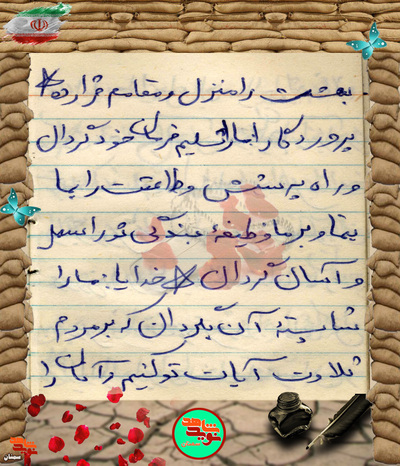 بهشت را منزل و مقامم قرار ده *
پروردگارا ما را تسلیم فرمان خود گردان
و راه پرستش و طاعتت را بما
بنما و بر ما وظیفهٔ بندگی تو را سهل
و آسان گردان * خدایا: ما را
شایستهٔ آن گردان که بر مردم
تلاوت آیات تو کنیم و آنان را
نوید شاهد
سمنان